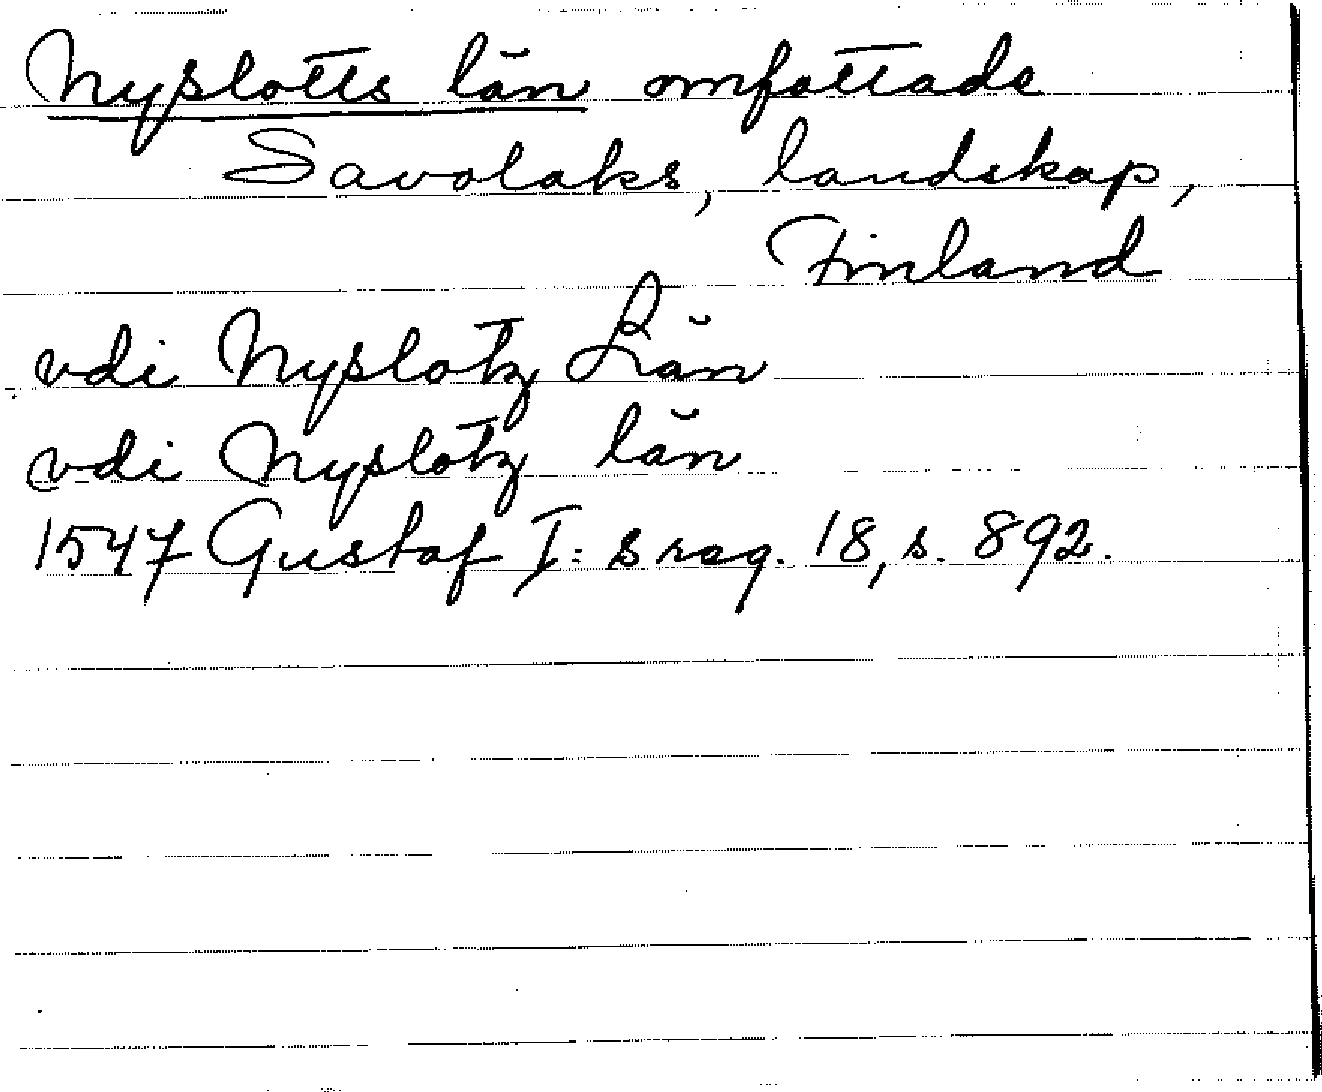 Nyslotts län omfattade
Savolaks, landskap,
Finland
vdi Nyslotz Län
vdi Nyslotz län
1547 Gustaf I:s reg. 18, s. 892.